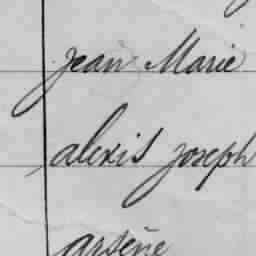 Jean Marie
alexis Joseph
arsène